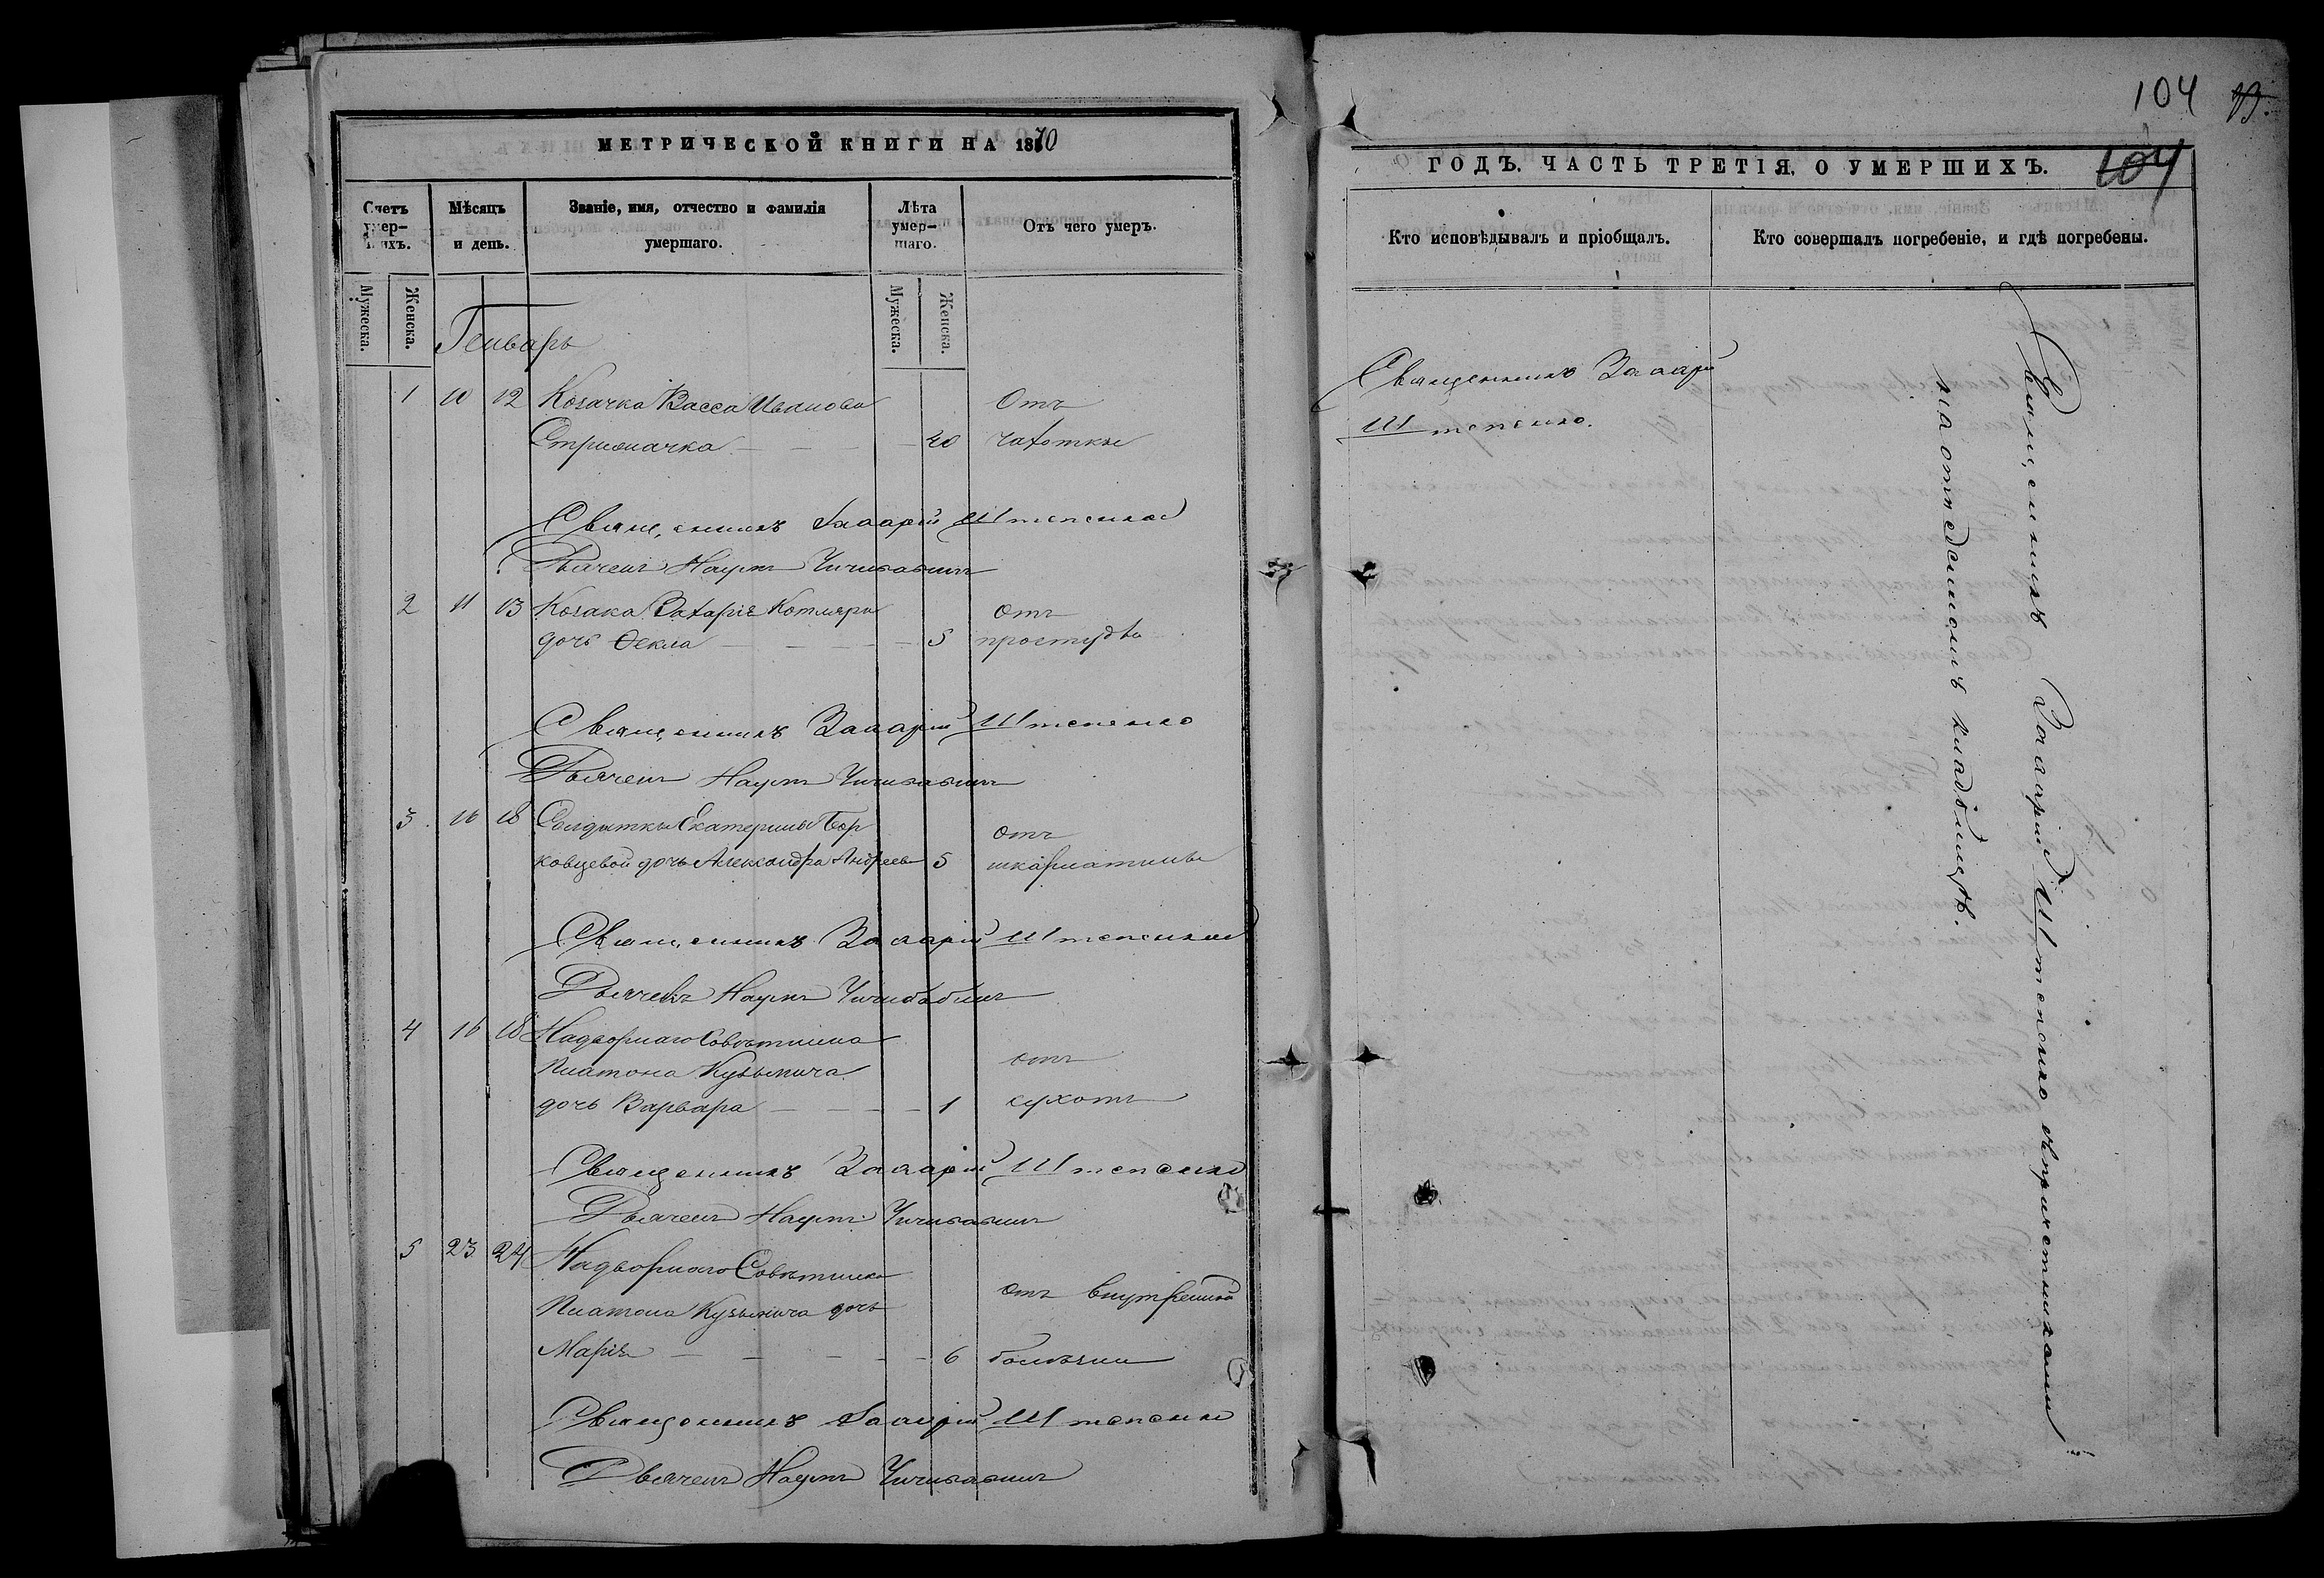 МЕТРИЧЕСКОЙ КНИГИ НА 1870
Счетъ умер-шихъ.
Мѣсяцъ и день.
Званіе, имя, отчество и фамилія умершаго.
Лѣта умер-шаго.
Отъ чего умеръ.
Мужеска.
Женска.
Мужеска.
Женска.
Генварь
1 10 12 Козачка Васса Иванова Отъ
40 чахотки
Священникъ Захарій Штепенко
Дьячекъ Наумъ Чичибабинъ
2 11 13 Козака Захарія Котляра отъ
дочь Ѳекла 5 простуды
Священникъ Захарій Штепенко
Дьячекъ Наумъ Чичибабинъ
3 16 18 Солдатки Екатерины Бор
ковцевой дочь Александра Андреева 5 отъ шкарлатины
Священникъ Захарій Штепенко
Дьячекъ Наумъ Чичибабинъ
4 16 18 Надворнаго Совѣтника
Платона Кузьмича отъ
дочь Варвара 1 сухотъ
Священникъ Захарій Штепенко
Дьячекъ Наумъ Чичибабинъ
5 23 24 Надворнаго Совѣтника
Платона Кузьмича дочь отъ внутренней
Марія 6 болѣзни
Священникъ Захарій Штепенко
Дьячекъ Наумъ Чичибабинъ
104
104
ГОДЪ. ЧАСТЬ ТРЕТІЯ, О УМЕРШИХЪ.
Кто исповѣдывалъ и пріобщалъ.
Кто совершалъ погребеніе, и гдѣ погребены.
Священникъ Захарій
Штепенко.
Священникъ Захарій Штепенко съ причетниками
на отведенномъ кладбищѣ.